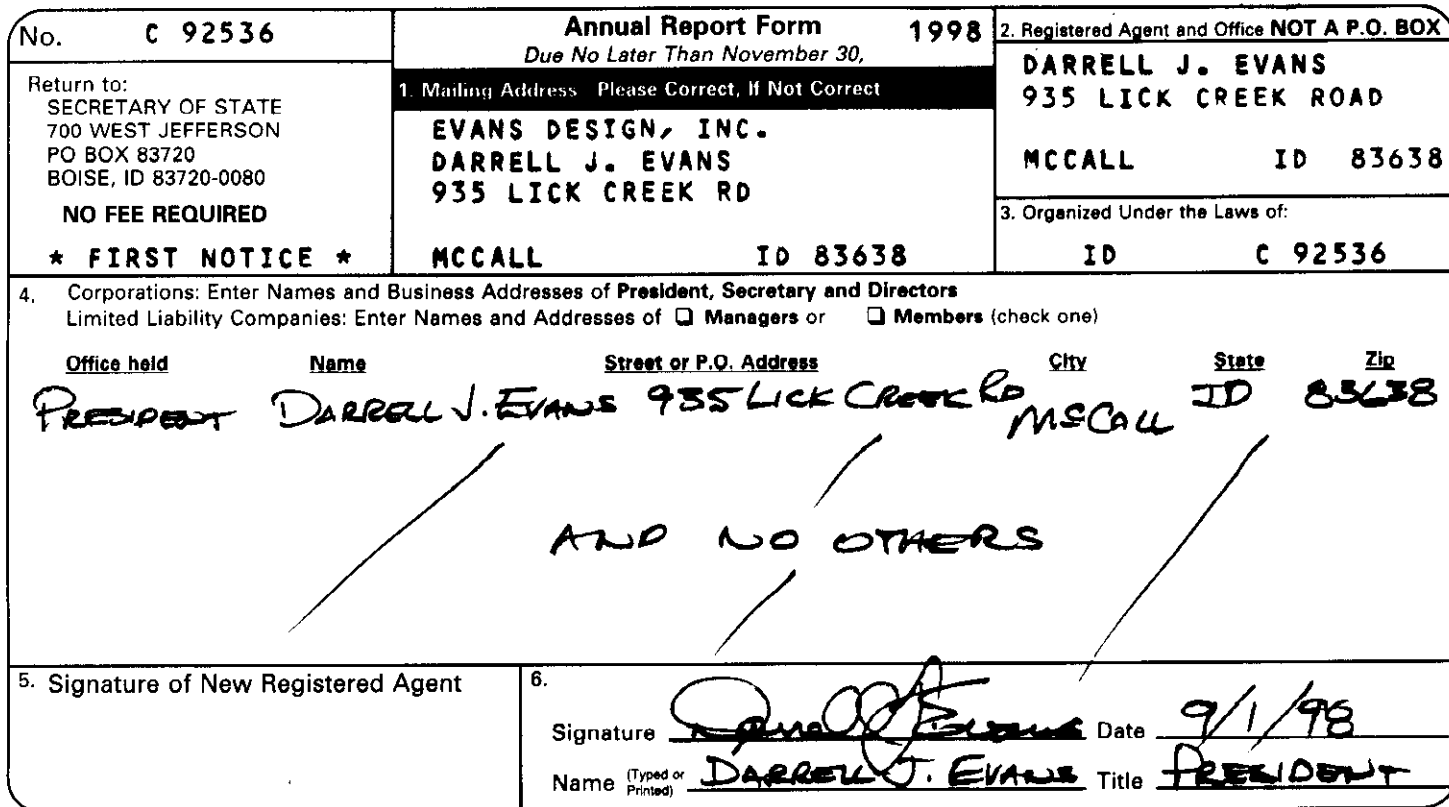 No. C 92536
Return to:
SECRETARY OF STATE
700 WEST JEFFERSON
PO BOX 83720
BOISE, ID 83720-0080
NO FEE REQUIRED
* FIRST NOTICE *
Annual Report Form 1998
Due No Later Than November 30,
1. Mailing Address Please Correct, If Not Correct
EVANS DESIGN, INC.
DARRELL J. EVANS
935 LICK CREEK RD
MCCALL ID 83638
2. Registered Agent and Office NOT A P.O. BOX
DARRELL J. EVANS
935 LICK CREEK ROAD
MCCALL ID 83638
3. Organized Under the Laws of:
ID C 92536
4. Corporations: Enter Names and Business Addresses of President, Secretary and Directors
Limited Liability Companies: Enter Names and Addresses of ❑ Managers or ❑ Members (check one)
Office held Name Street or P.O. Address City State Zip
PRESIDENT DARRELL J. EVANS 935 LICK CREEK RD MCCALL ID 83638
AND NO OTHERS
5. Signature of New Registered Agent
6.
Signature Darrell J Evans Date 9/1/98
Name (Typed or Printed) DARRELL J. EVANS Title PRESIDENT